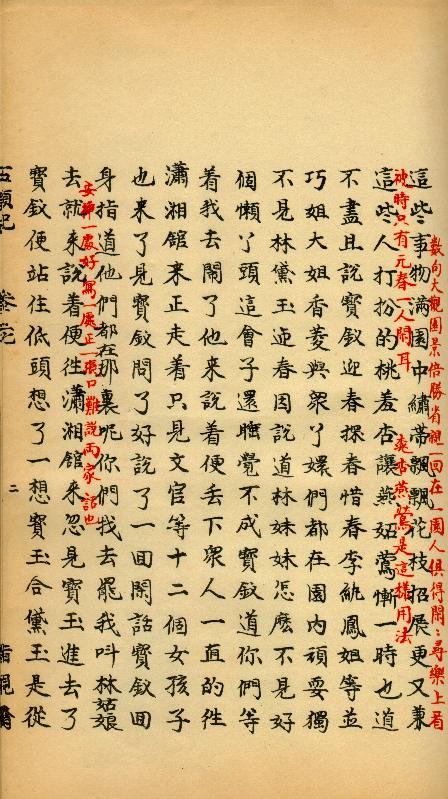 數句大觀園景倍勝省親一回在一園人俱得閒閒尋樂上看
這些事物滿園中繡帶飄飄花枝招展更又兼
彼時只有元春一人閒耳
這些人打扮的桃羞杏讓燕妒鶯慚一時也道
桃杏燕鶯是這樣用法
不盡且說寶釵迎春探春惜春李紈鳳姐等並
巧姐大姐香菱與眾丫嬛們都在園內頑耍獨
不見林黛玉迎春因說道林妹妹怎麽不見好
個懶丫頭這會子還睡覺不成寶釵道你們等
着我去鬧了他來說着便丢下眾人一直的徃
瀟湘館來正走着只見文官等十二個女孩子
也來了見寶釵問了好說了一回閒話寶釵回
身指道他們都在那裏呢你們找去罷我叫林姑娘
安揷一處好寫一處正一張口難說兩家話也
去就來說着便徃瀟湘館來忽見寶玉進去了
寶釵便站住低頭想了一想寶玉合黛玉是從
石頭記 二